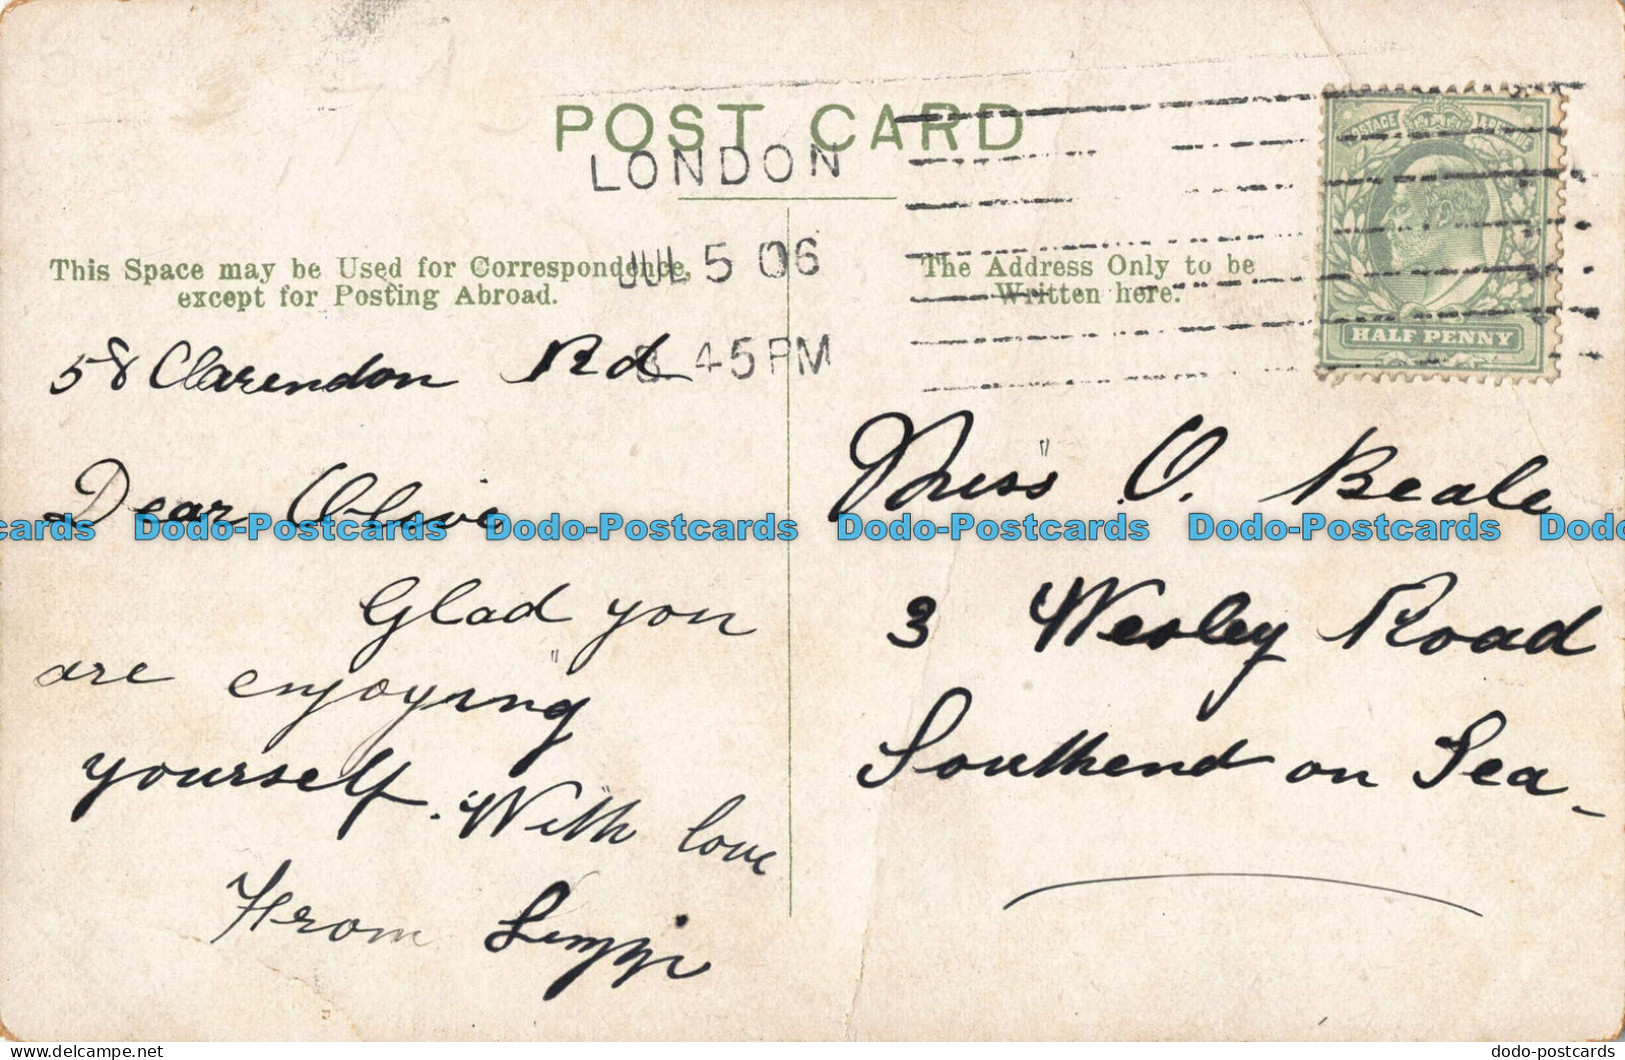 POST CARD
LONDON
JUL 5 06
45 PM
This Space may be Used for Correspondence,
except for Posting Abroad.
The Address Only to be
Written here.
POSTAGE & REVENUE
HALF PENNY
58 Clarendon Rd
Dear Olive
Glad you
are enjoying
yourself. With love
From
Miss O. Beale
3 Wesley Road
Southend on Sea
Dodo-Postcards Dodo-Postcards Dodo-Postcards Dodo-Postcards
www.delcampe.net
dodo-postcards